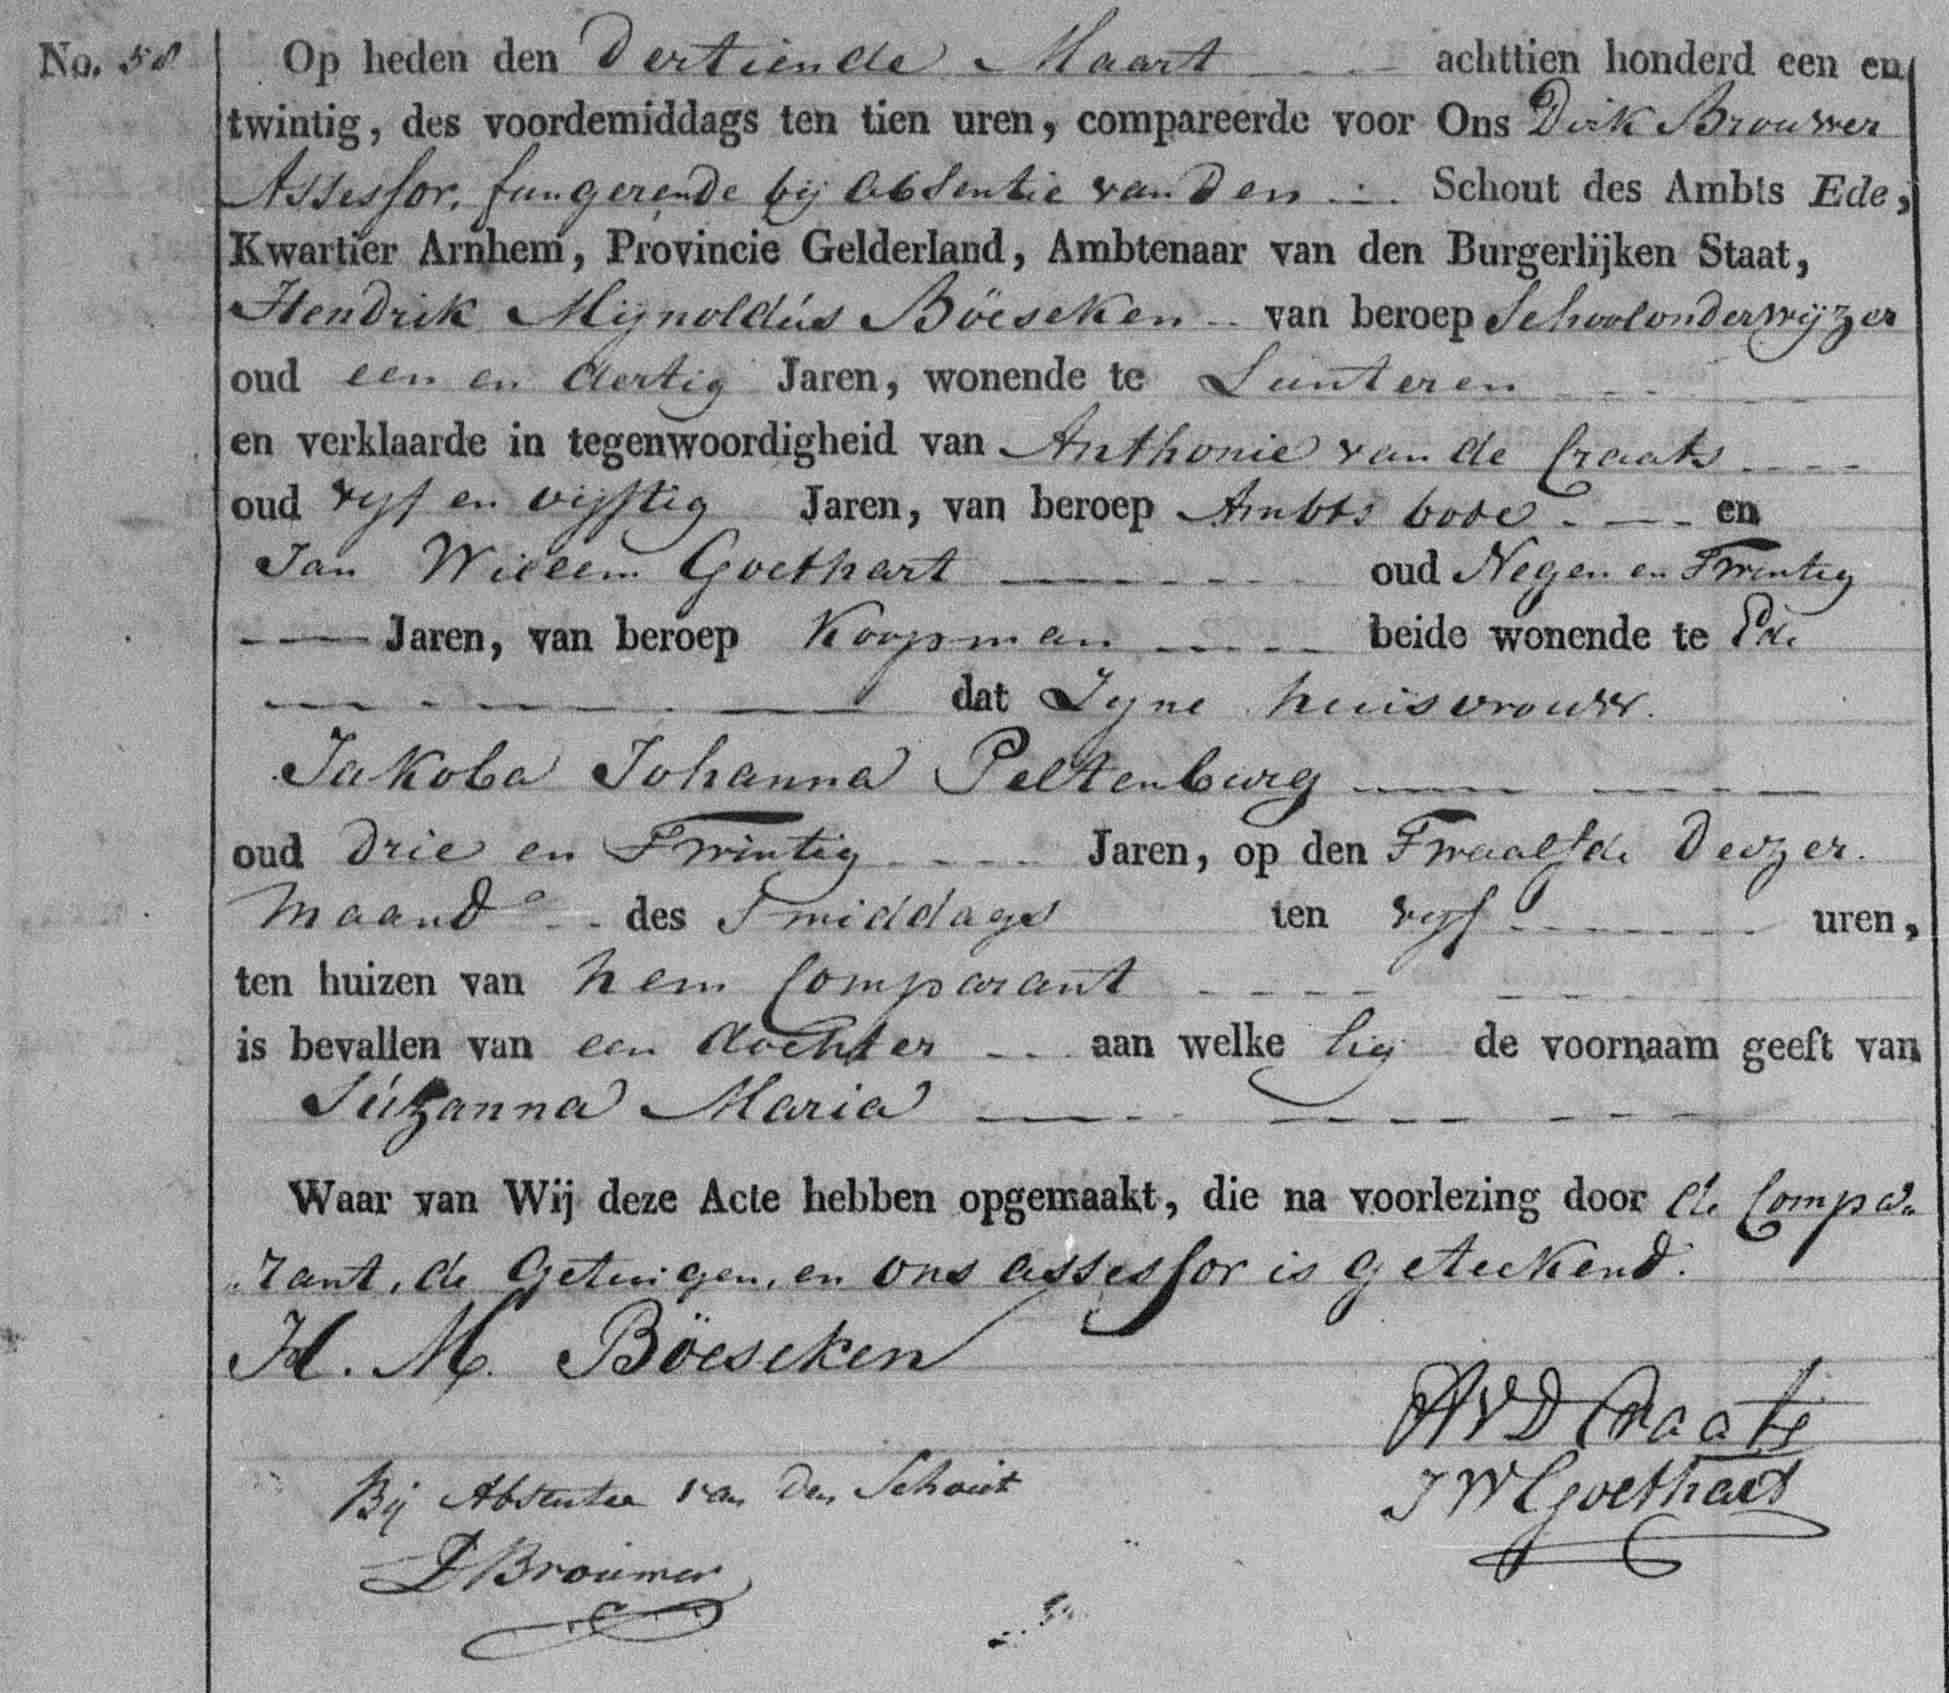 No. 58
Op heden den Dertiende Maart achttien honderd een en
twintig, des voordemiddags ten tien uren, compareerde voor Ons Dirk Brouwer
Assessor, fungerende bij absentie van den Schout des Ambts Ede,
Kwartier Arnhem, Provincie Gelderland, Ambtenaar van den Burgerlijken Staat,
Hendrik Mijnoldus Böeseken van beroep Schoolonderwijzer
oud een en dertig Jaren, wonende te Lunteren
en verklaarde in tegenwoordigheid van Anthonie van de Craats
oud vijf en vijftig Jaren, van beroep Ambts bode en
Jan Willem Goethart oud Negen en Twintig
Jaren, van beroep Koopman beide wonende te Ede
dat Zyne huisvrouw
Jakoba Johanna Peltenburg
oud Drie en Twintig Jaren, op den Twaalfde Dezer
Maand des Smiddags ten vyf uren,
ten huizen van hem Comparant
is bevallen van een dochter aan welke hij de voornaam geeft van
Súzanna Maria
Waar van Wij deze Acte hebben opgemaakt, die na voorlezing door de Compa-
rant, de Getuigen, en ons assessor is geteekend.
H. M. Böeseken
AVD Craats
Bij Absentie van den Schout
JW Goethart
D Brouwer